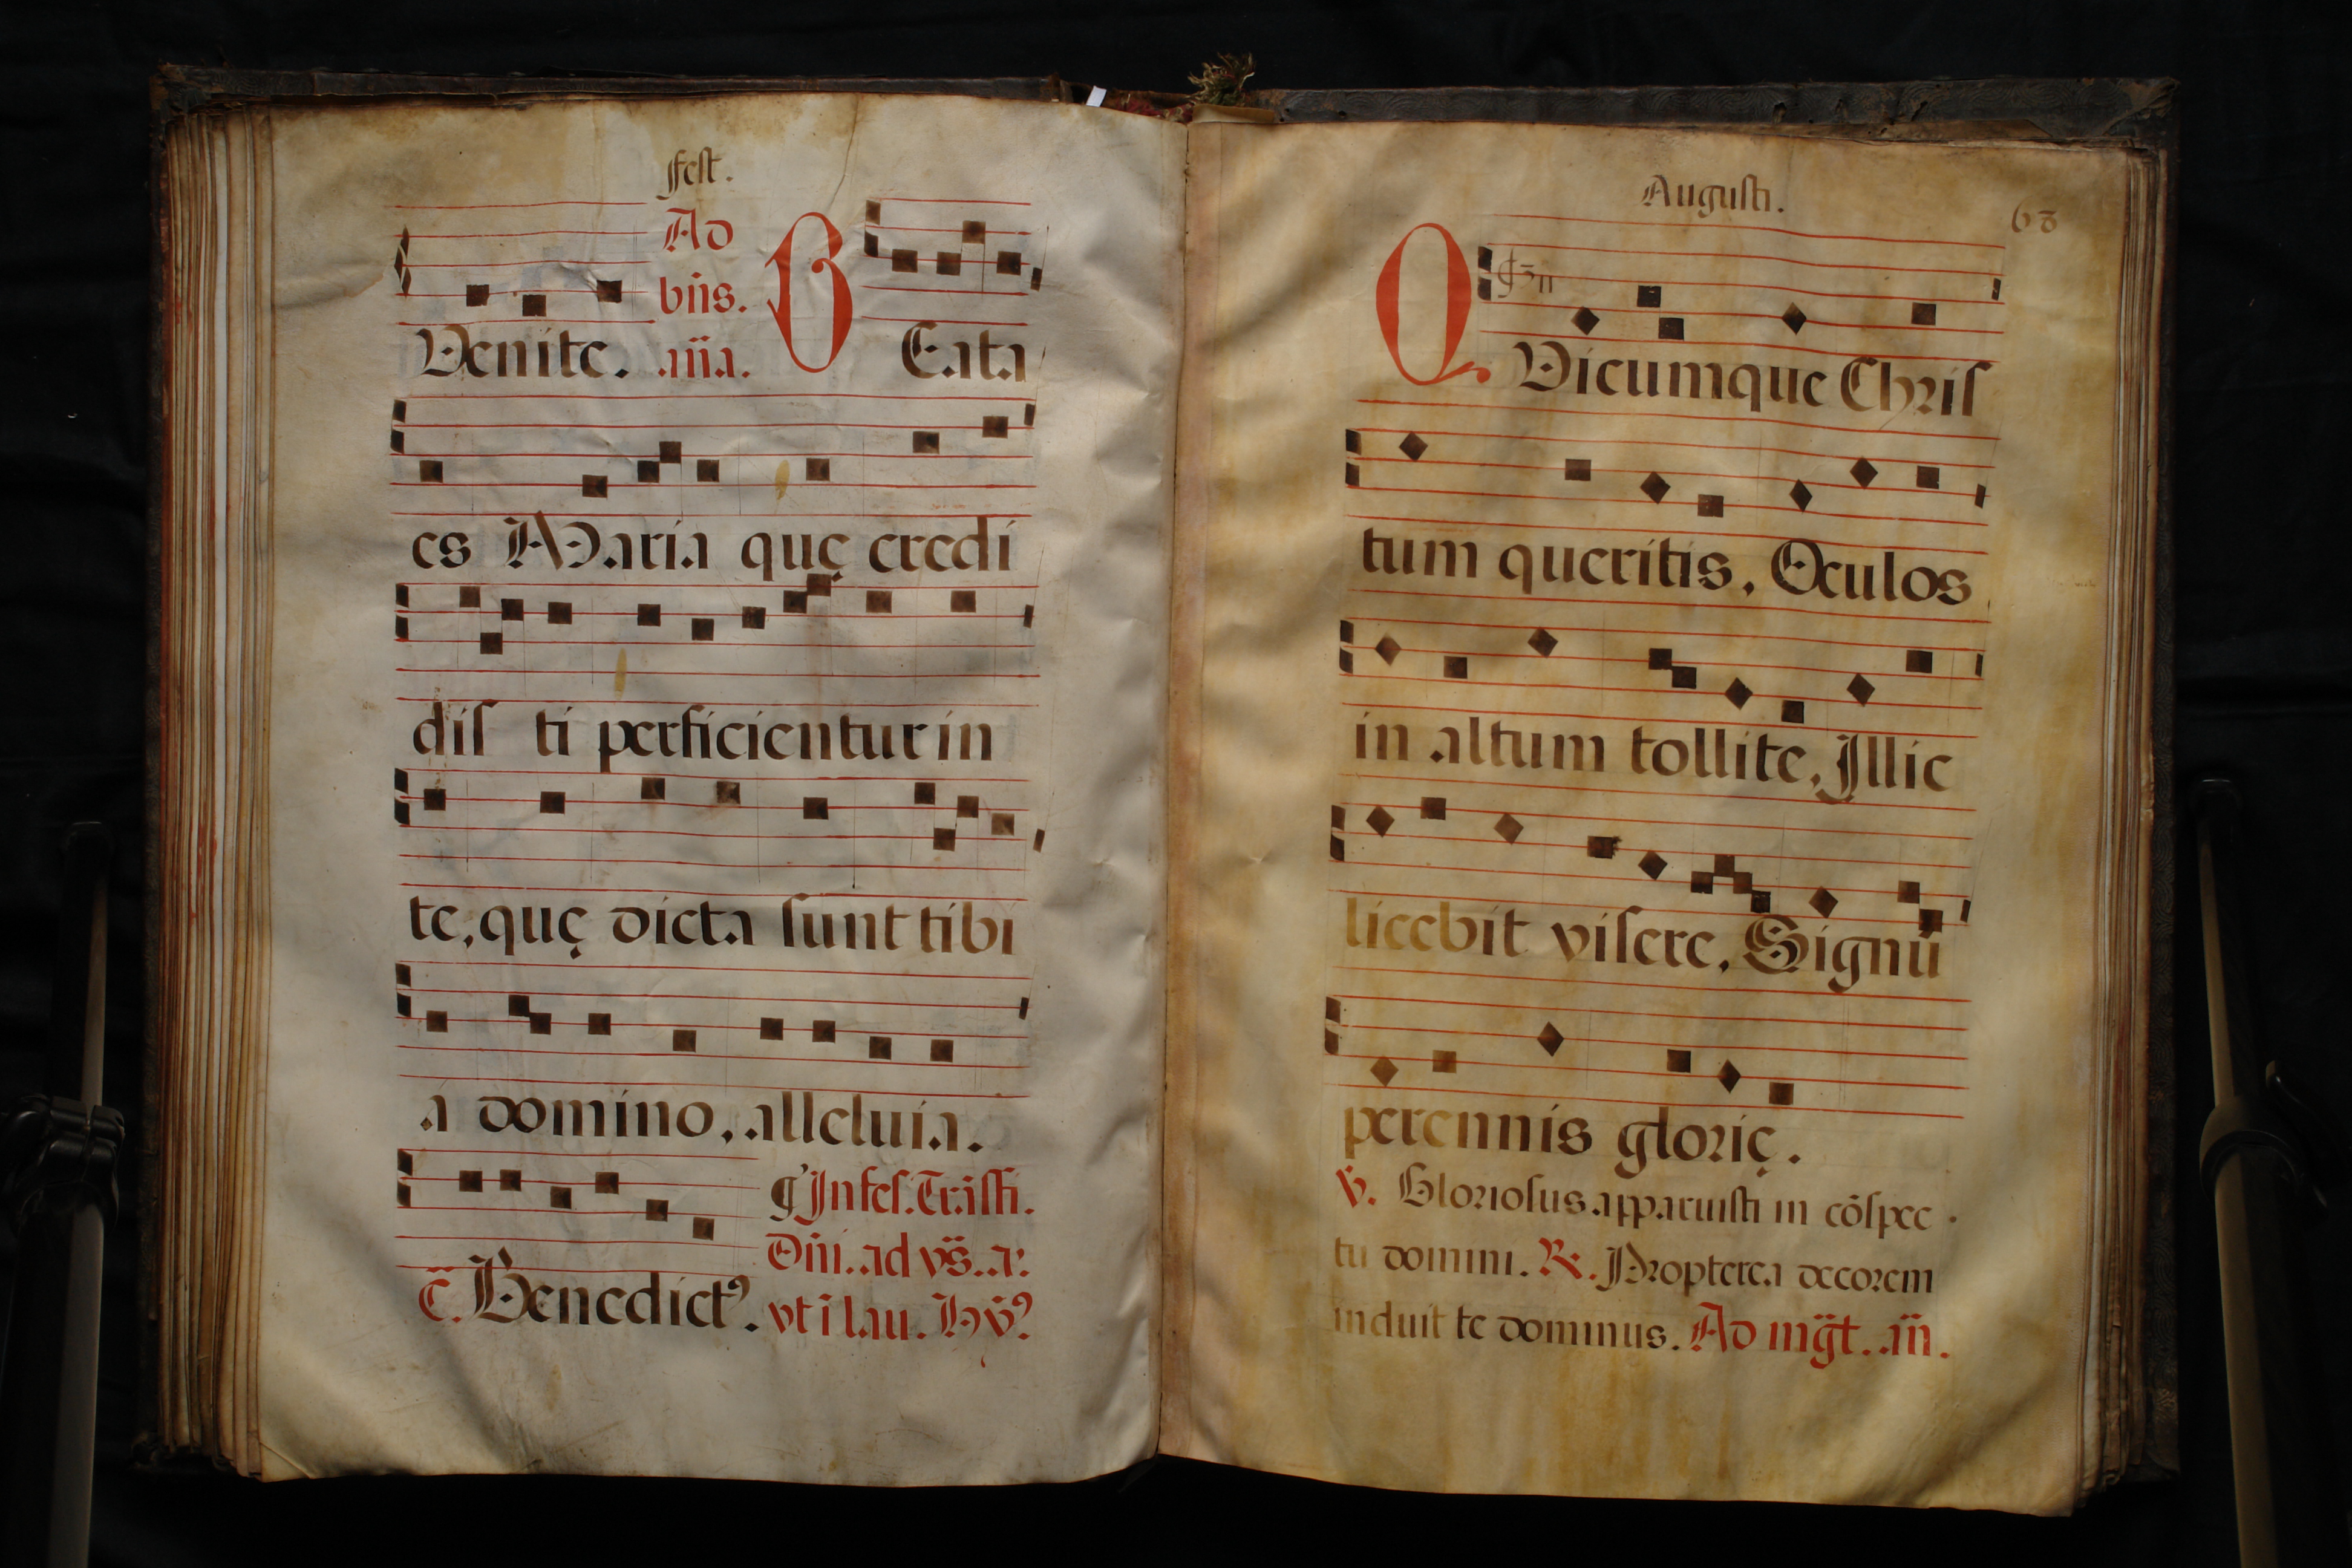 fest.
Ad
bñs.
Venite. añа. BEata
es Maria quę credi
diſ ti perficientur in
te, quę dicta sunt tibi
a domino, alleluia.
Inſeſ. Trāſfi.
Dñi. ad vs̄. a:
c̄. Benedict⁹. vt ī lau. Hỹ⁹
Augusti.
68
QVicumque Chriſ
tum queritis, Oculos
in altum tollite, Illic
licebit viſere, Signū
perennis glorię.
V̄. Gloriosus apparuisti in cōspec
tu domini. R. Propterea decorem
induit te dominus. Ad mḡt. añ.